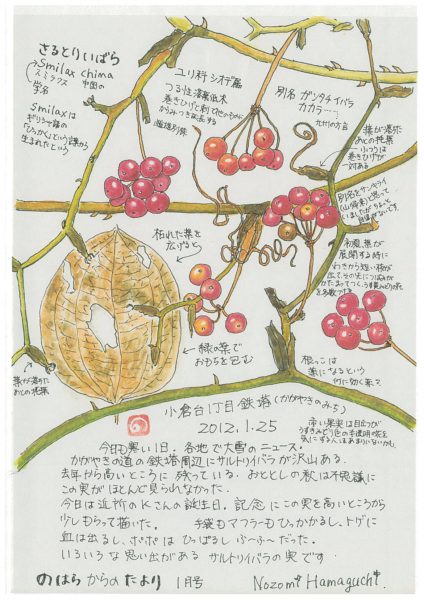 さるとりいばら
Smilax china
スミラックス 中国の
学名
Smilaxは
ギリシア語の
「ひっかく」という語から
生まれたという
ユリ科 シオデ属
つる性落葉低木
巻きひげと刺で他のものに
からみつき成長する
雌雄別株
別名 ガンタチイバラ
カカラ……
九州の方言
葉が落ちた
あとの托葉
ふつうは
巻きひげが
一対ある
別名をサンキライ
(山帰来)と思って
いましたがちょっと
初夏、葉が
展開する時に
わきから短い枝が
出て、その先につぼみが
かたまってつく。うす黄みどりの花
を多数つける
枯れた葉を
広げると
緑の葉で
おもちを包む
葉が落ちた
あとの托葉
根っこは
薬になるという
何に効く薬?
赤い果実は目立つが
うすみどり色の半透明の花を
気にする人はあまりにいないかも
小倉台1丁目鉄塔(かがやきのみち)
2012.1.25
今日も寒い1日。各地で大雪のニュース。
かがやきの道の鉄塔周辺にサルトリイバラが沢山ある。
去年から高いところに残っている。おととしの秋は不思議に
この実がほとんど見られなかった。
今日は近所のKさんの誕生日。記念にこの実を高いところから
少しもらって描いた。 手袋もマフラーもひっかかるし、トゲに
血は出るし、ポポは ひっぱるし ふ〜ふ〜だった。
いろいろな思い出がある サルトリイバラの実です
のはらからのたより 1月号 Nozomi Hamaguchi